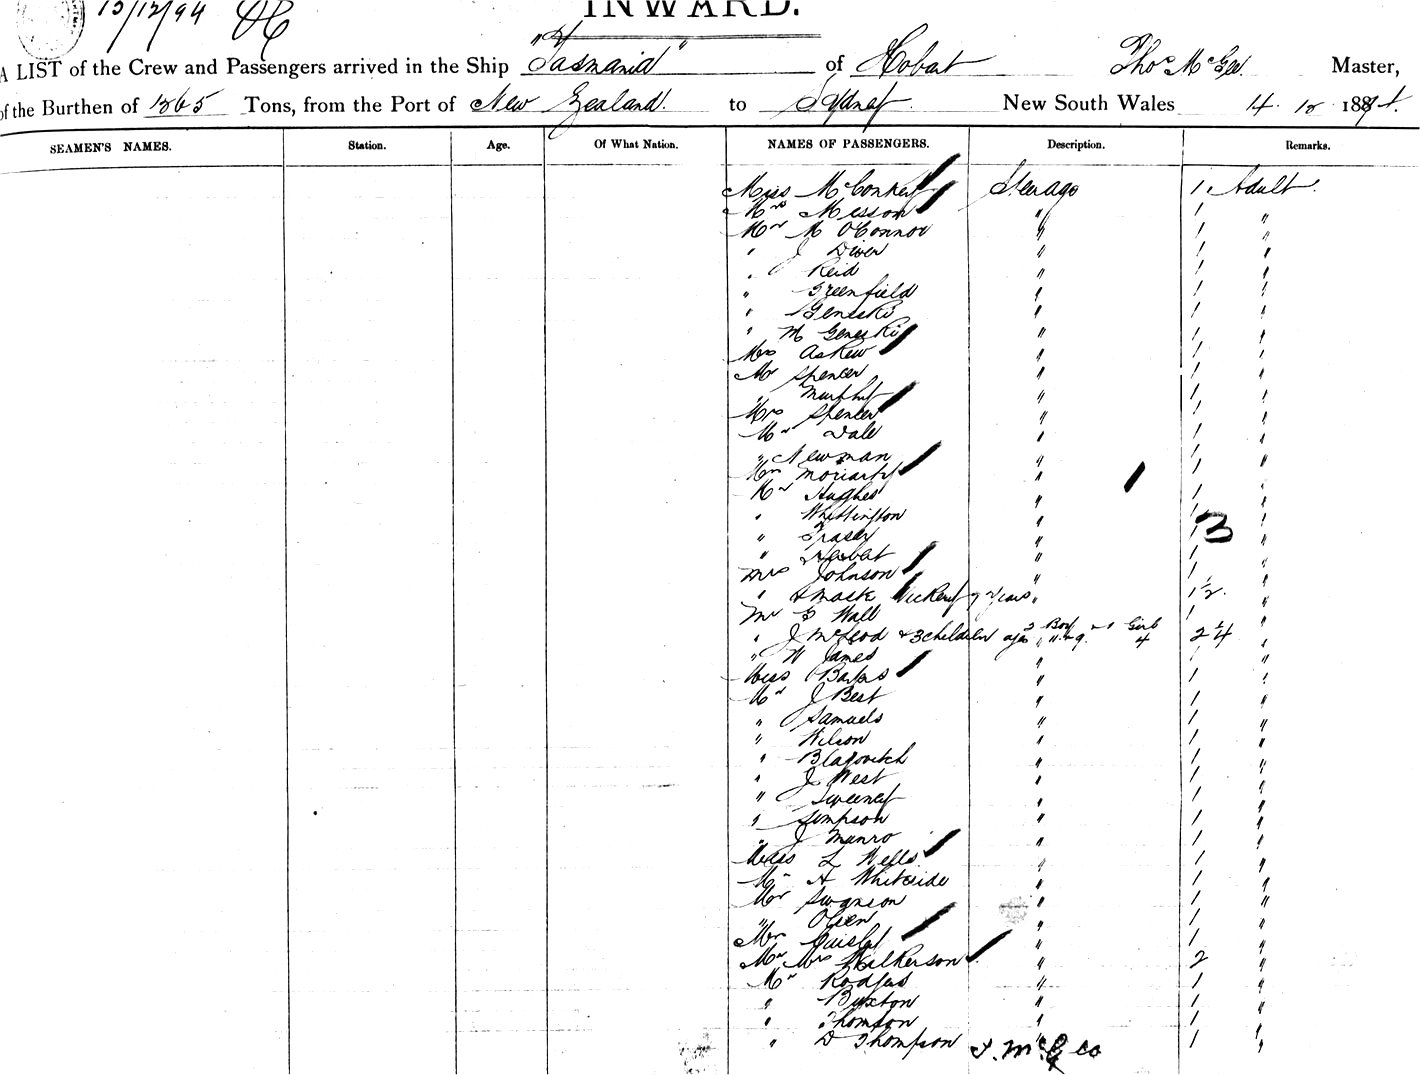 15/12/94
INWARD.
A LIST of the Crew and Passengers arrived in the Ship "Tasmania" of Hobart Thos McGee. Master,
of the Burthen of Tons, from the Port of New Zealand. to Sydney New South Wales 14. 12 1894.
SEAMEN'S NAMES. Station. Age. Of What Nation. NAMES OF PASSENGERS. Description. Remarks.
Miss McConkey Steerage 1 Adult.
Mrs Messom " 1 "
Mr M O'Connor " 1 "
" J Diver " 1 "
" Reid " 1 "
" Greenfield " 1 "
" Geneski " 1 "
" M Geneski " 1 "
Mrs Askew " 1 "
Mr Spencer " 1 "
" Murphy " 1 "
Mrs Spencer " 1 "
Mr Dale " 1 "
" Newman " 1 "
Mrs Moriarty " 1 "
Mr Hughes " 1 "
" Whittington " 1 "
" Fraser " 1 " 3
" " 1 "
Mrs Johnson " 1 "
" & mast Vickery 7 years " 1 1/2 "
Mr Wall 1 "
" J McLeod & 3 children ages 2 Boy 11 & 9 1 Girl 4 " 2 1/4 "
" W James " 1 "
Miss " 1 "
Mr J Best " 1 "
" Samuels " 1 "
" Wilson " 1 "
" Blagovitch " 1 "
" J West " 1 "
" Sweeney " 1 "
" Simpson " 1 "
" J Munro " 1 "
Miss L Wells " 1 "
Mr H Whiteside " 1 "
Mr Swanson " 1 "
" Olsen " 1 "
" 1 "
Mr Mrs Wilkerson " 2 "
Mr Rodgers " 1 "
" Buxton " 1 "
" Thomson " 1 "
" D Thompson 1 "
T. McGee